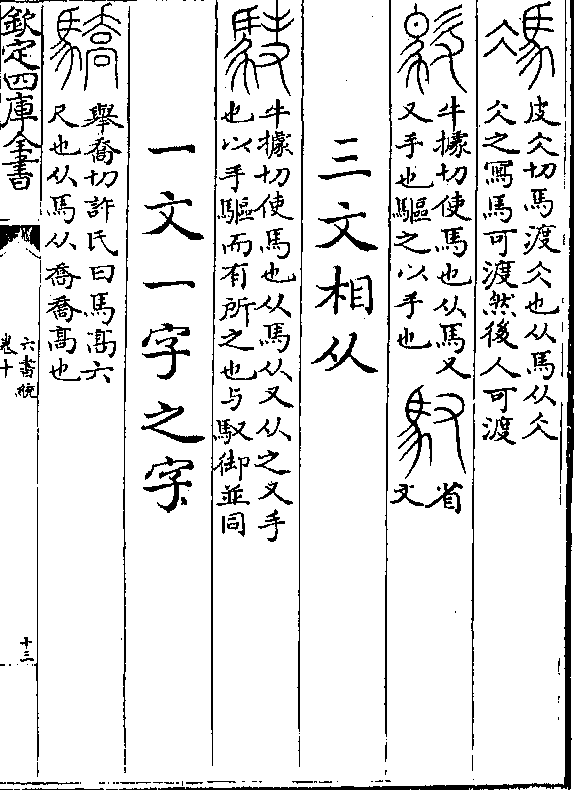 皮仌切馬渡仌也从馬从仌
仌之寫馬可渡然後人可渡
牛據切使馬也从馬又
又手也驅之以手也
馭
省
文
三文相从
牛據切使馬也从馬从又从之又手
也以手驅而有所之也与馭御並同
一文一字之字
驕
舉喬切許氏曰馬高六
尺也从馬从喬喬高也
欽定四庫全書
六書統
卷十
十三